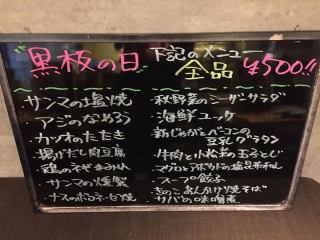 黒板の日
下記のメニュー
全品 ¥500!!
サンマの塩焼
アジのなめろう
カツオのたたき
揚げだし肉豆腐
鶏のネギまみれ
サンマの燻製
ナスのボロネーゼ焼
秋野菜のシーザーサラダ
海鮮ユッケ
新じゃがとベーコンの
豆乳グラタン
牛肉と小松菜の玉子とじ
マグロとアボカドの塩昆布和え
スープ餃子
きのこあんかけ焼そば
サバの味噌煮